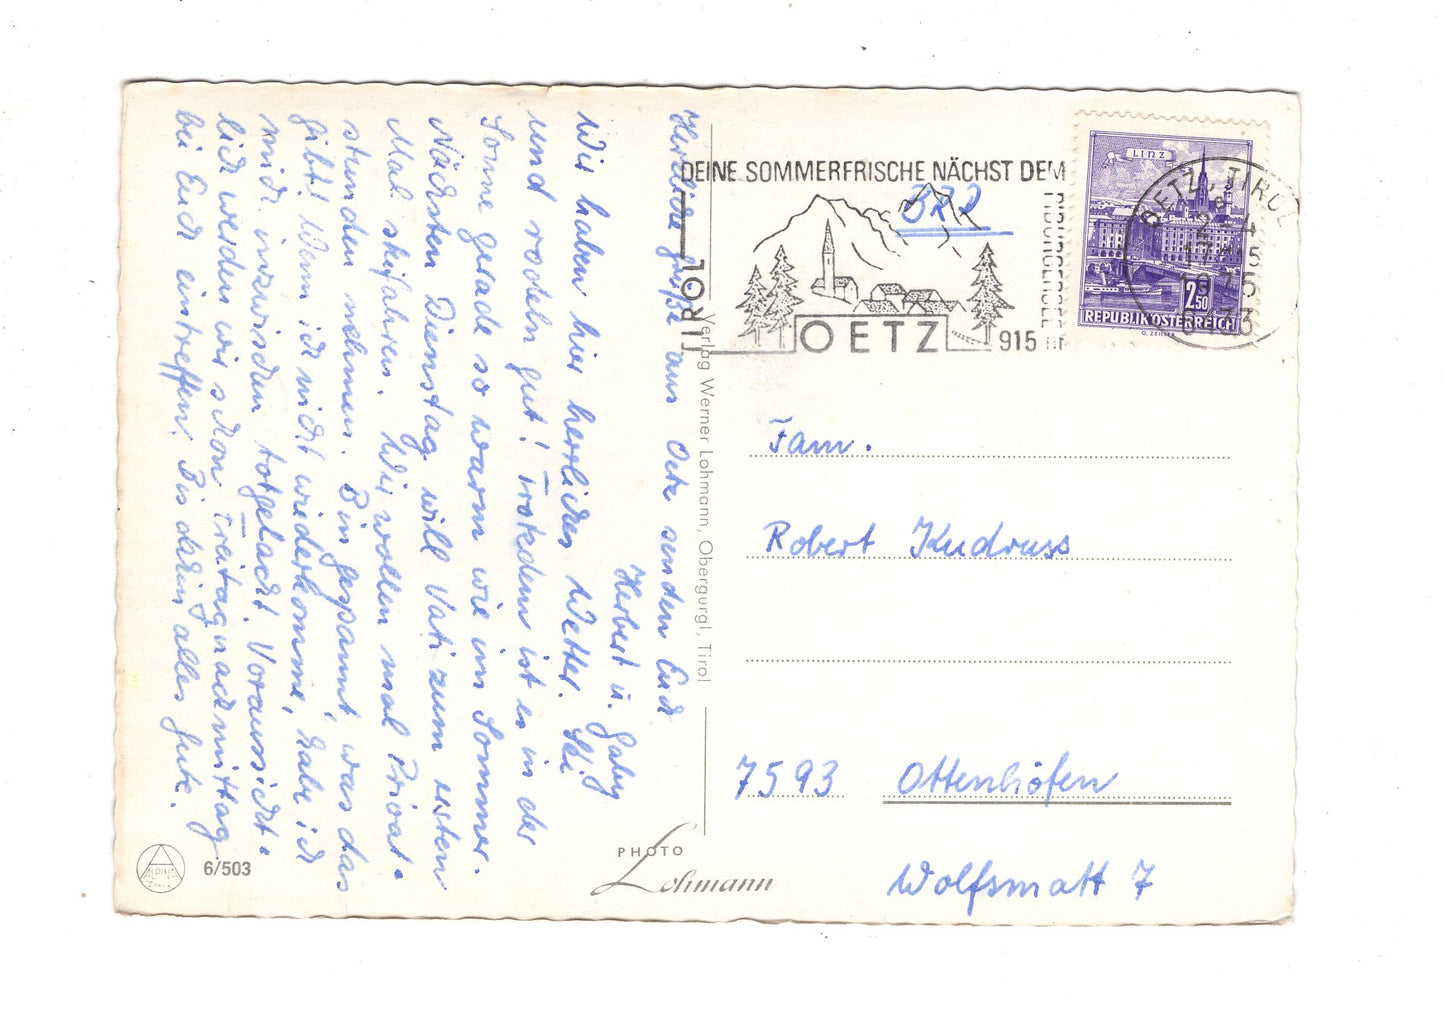 Herzliche Grüße aus Oetz senden Euch
Herbert u. Gaby
Wir haben hier herrliches Wetter. Ski
und rodeln gut! Trotzdem ist es in der
Sonne gerade so warm wie im Sommer.
Nächsten Dienstag will Vati zum ersten
Mal skifahren. Wir wollen mal Privat-
stunden nehmen. Bin gespannt, was das
gibt! Wenn ich nicht wiederkomme, habe ich
mich inzwischen totgelacht. Voraussicht-
lich werden wir schon Freitagnachmittag
bei Euch eintreffen. Bis dahin alles Gute.
DEINE SOMMERFRISCHE NÄCHST DEM
TIROL
OETZ
915
322
LINZ
2.50
REPUBLIK ÖSTERREICH
OETZ, TIROL
6433
Verlag Werner Lohmann, Obergurgl, Tirol
Fam.
Robert Kudruss
7593 Ottenhöfen
Wolfsmatt 7
ALPINA
6/503
PHOTO
Lohmann